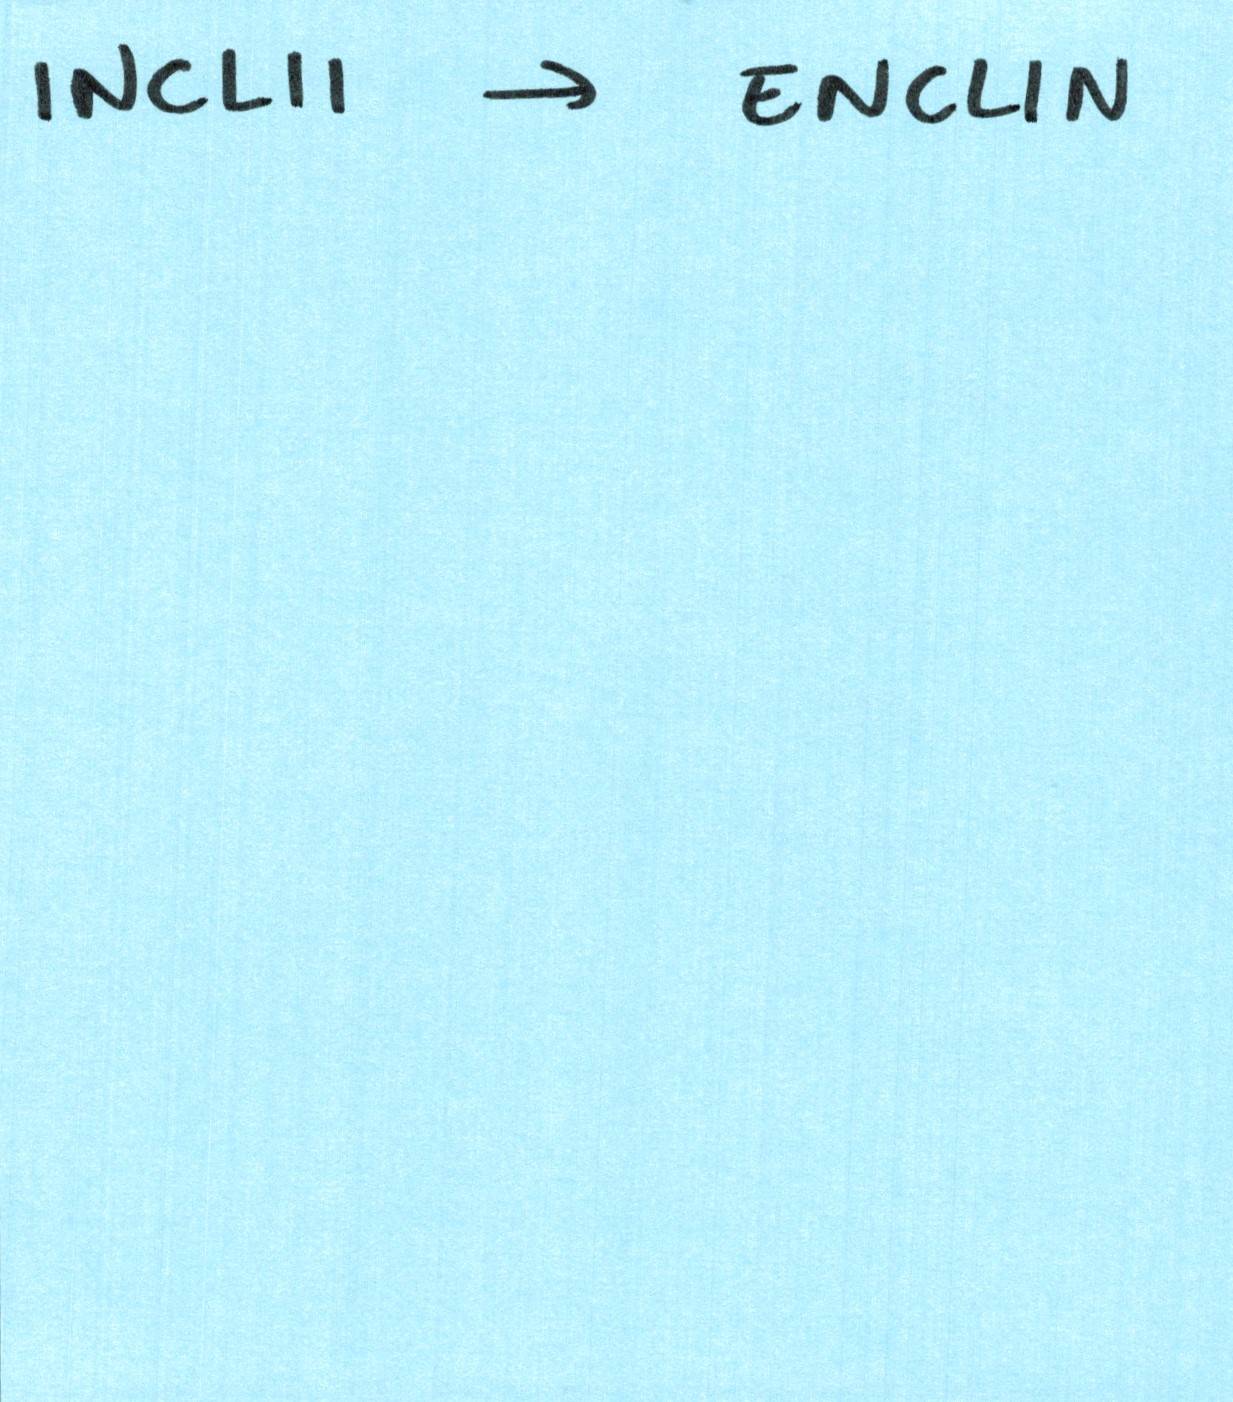 INCLII → ENCLIN